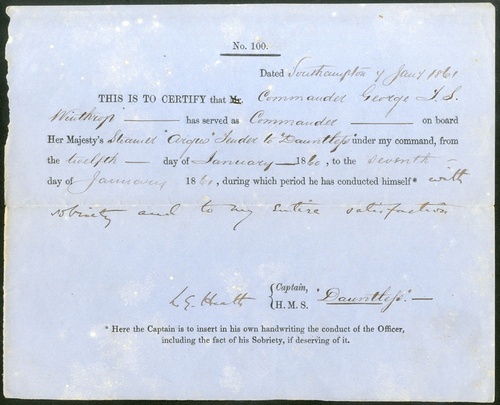 No. 100.
Dated Southampton 7 Jany 1861
THIS IS TO CERTIFY that Mr. Commander George T. S.
Winthrop has served as Commander on board
Her Majesty's Steamer "Argus" Tender to "Dauntless" under my command, from
the twelfth day of January 1860, to the seventh
day of January 1861, during which period he has conducted himself* with
sobriety and to my entire satisfaction
L G Heath { Captain,
H. M. S. "Dauntless".
* Here the Captain is to insert in his own handwriting the conduct of the Officer,
including the fact of his Sobriety, if deserving of it.